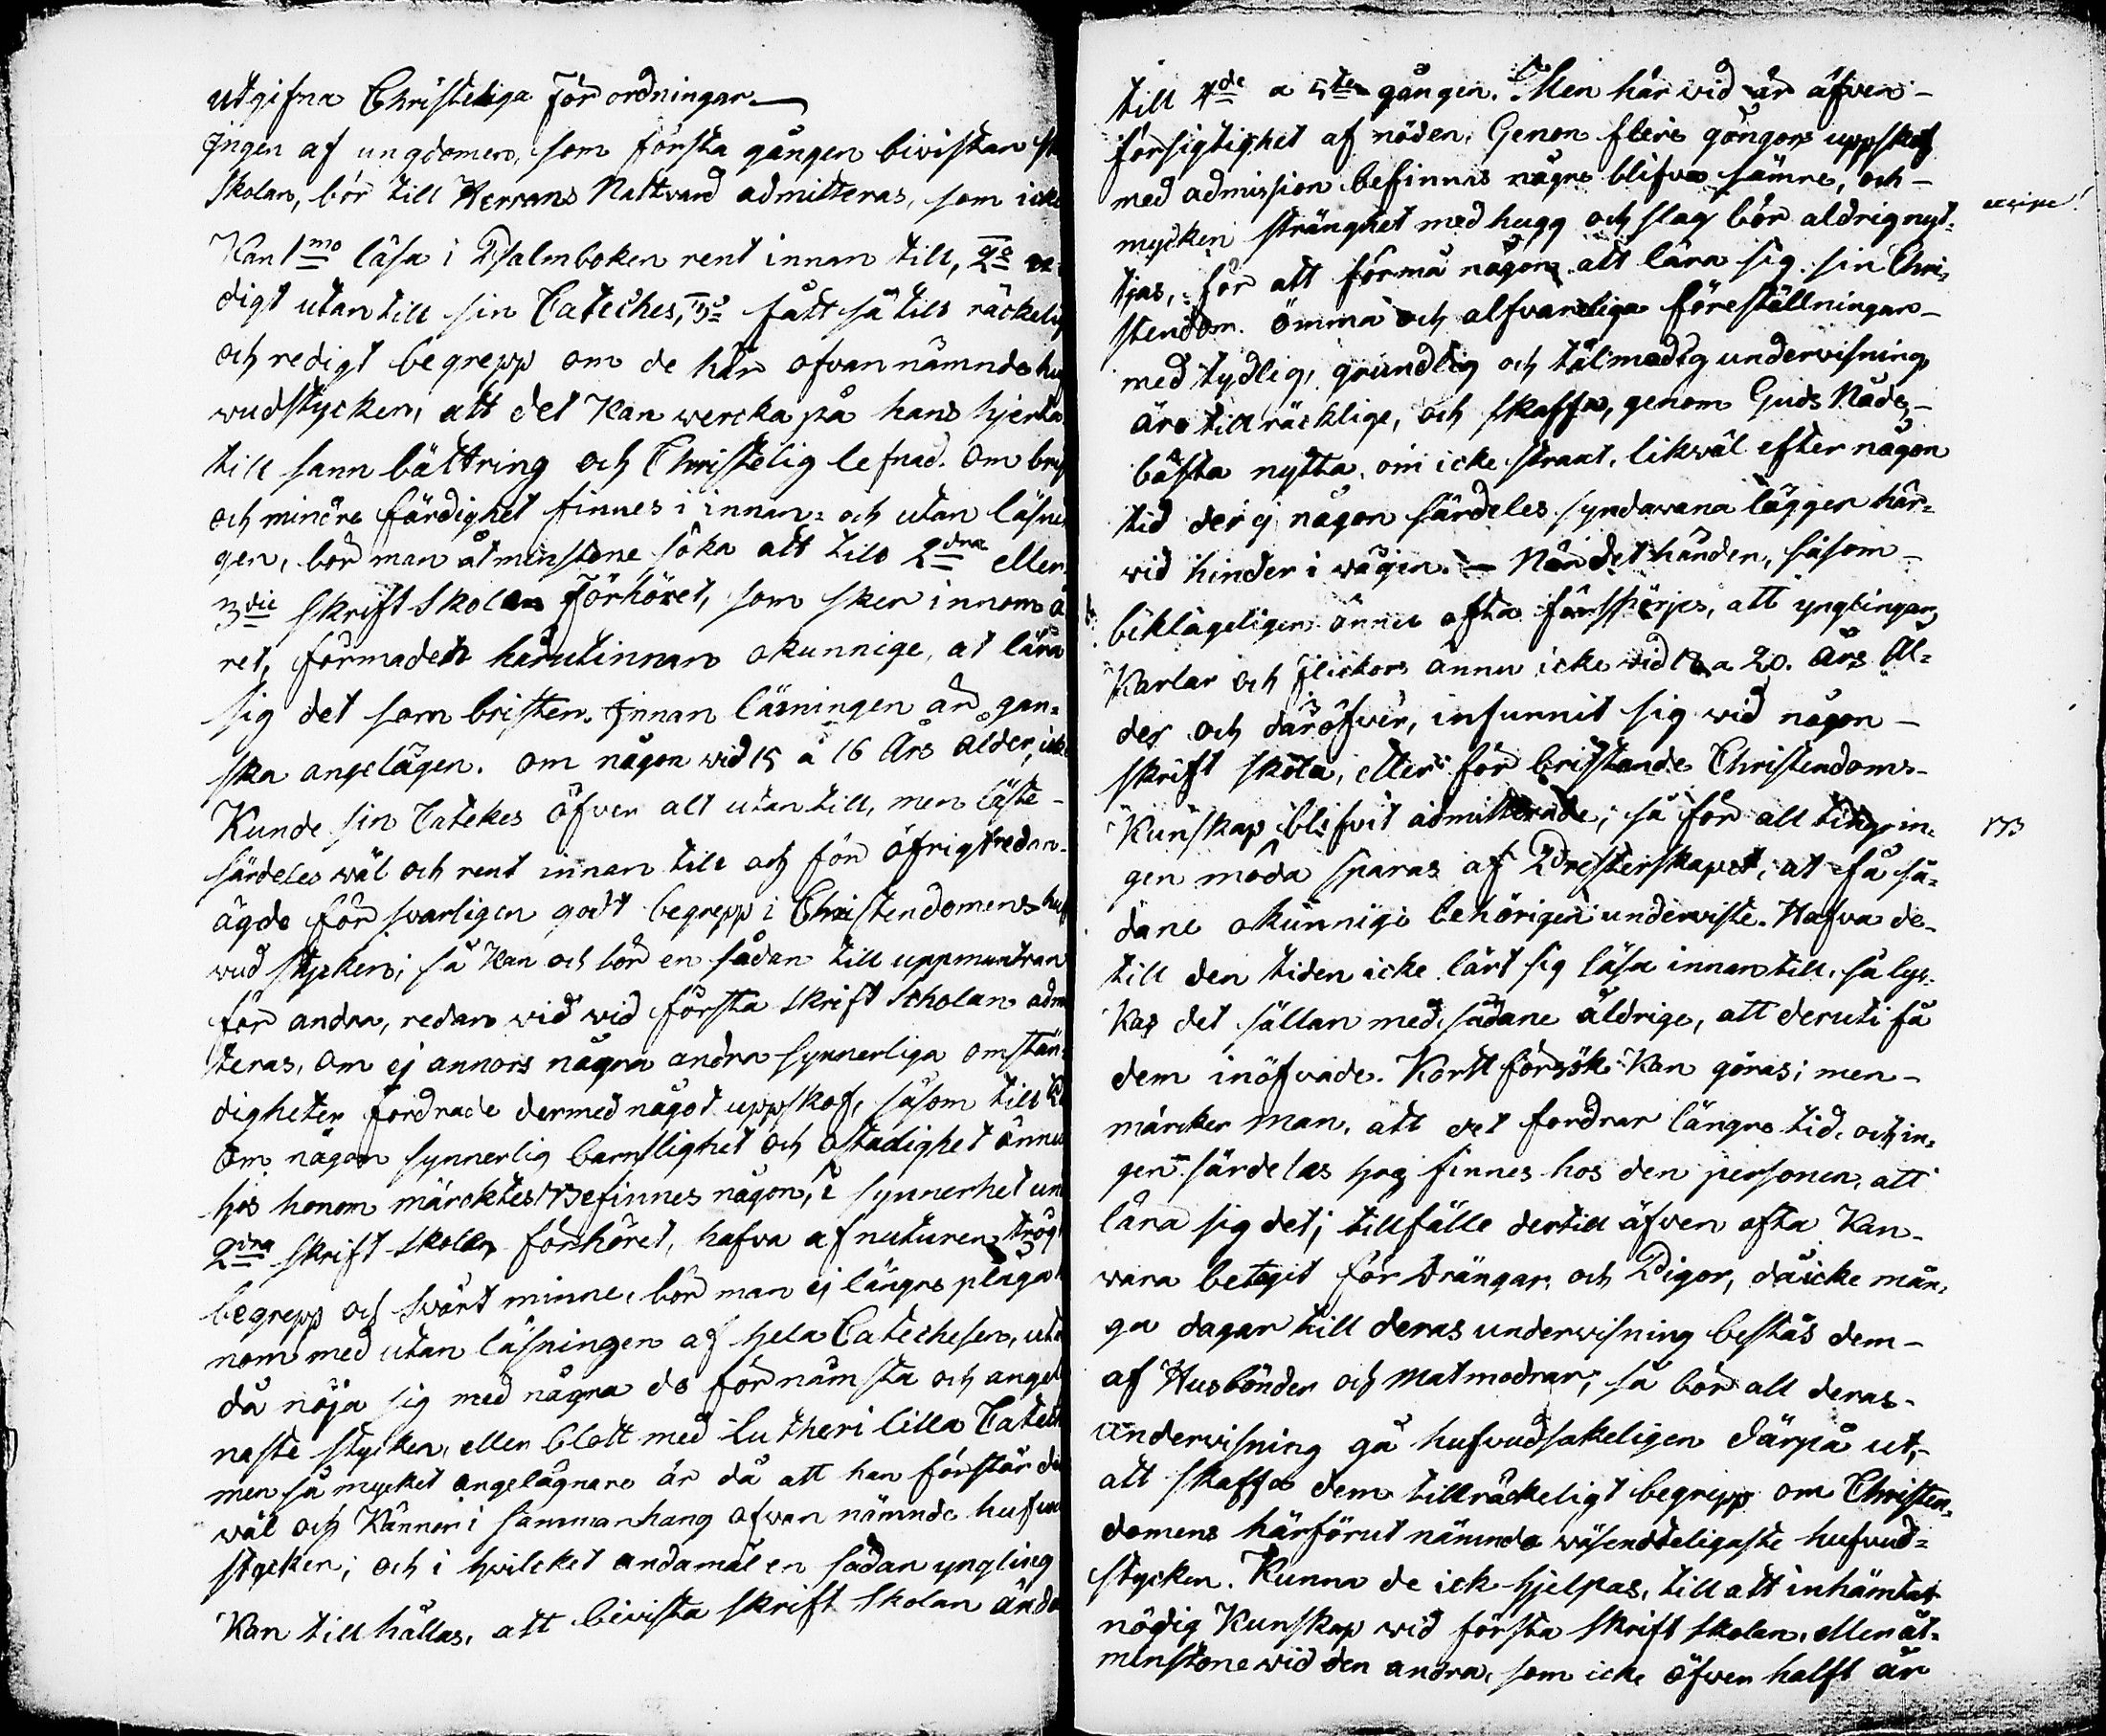 utgifna Christeliga Förordningar.
Ingen af ungdomen, som första gången bivistar
skolan, bör till Herrans Nattvard admitteras, som icke
Kan 1mo läsa i Psalmboken rent innan till, 2o
digt utantill sin Cateches, 3o fått så till räckelig
och redigt begrepp om de här ofvannämnde
wudstycken, att det Kan wercka på hans hjerta
till sann bättring och Christelig lefnad. Om
och mindre färdighet finnes i innan- och utan läsnin
gen, bör man åtminstone söka att till 2dra eller
3die Skrift Skolan Förhöret, som sker innom å
ret, förmå den härutinnan okunnige, at lära
sig det som brister. Innan läsningen är gan-
ska angelägen. om någon wid 15 a 16 Års ålder, icke
Kunde sin Catekes öfver alt utantill, men läste -
särdeles wäl och rent innan till och för öfrigt redan-
ägde försvarligen godt begrepp i Christendomens
wud stycken; så Kan och bör en sådan till uppmuntran
för andra, redan wid wid första Skrift Scholan
teras, om ej annors några andra synnerliga omstän-
digheter fordrade dermed något uppskof, såsom till
Om någon synnerlig barnslighet och ostadighet ännu
hos honom märcktes. Befinnes någon, i synnerhet
2dra Skrift Skolan förhöret, hafva af naturen trögt
begrepp och svårt minne, bör man ej längre plåga
nom med utan läsningen af hela Catechesen, utan
då nöja sig med några de förnämsta och
naste stycken, eller blott med Lutheri lilla
men så mycket angelägnare är då att han förstår
wäl och Känner i sammanhang ofvan nämnde
stycken; och i hvilcket ändamål en sådan yngling
Kan till hållas, att bivista Skrift Skolan ända
till 4de a 5te gången. Men här wid är äfven -
försigtighet af nöden. Genom flere gångors uppskof
med admission befinnas någre blifva sämre, och -
mycken stränghet med hugg och slag bör aldrig nyt-
tjas, för att förmå någon att lära sig sin Chri-
stendom. ömma och alfvarliga föreställningar -
med tydlig, grundlig och tålmodig undervisning
äro tillräcklige, och skaffa, genom Guds Nåde, -
bästa nytta, om icke straxt, likwäl efter någon
tid der ej någon särdeles syndavana lägger här-
wid hinder i wägen. - När det händer, såsom -
beklageligen ännu ofta förspörjes, att ynglingar,
Karlar och flickor ännu icke wid 18 a 20. Års Ål-
der och däröfver, infunnit sig wid någon -
skrift skola, eller för bristande Christendoms-
Kunskap blifvit admitterade; så för all ting in-
gen möda sparas af Presterskapet, at få så-
dane okunnige behörigen underviste. Hafva de -
till den tiden icke lärt sig läsa innantill, så lyc-
kas det sällan med sådane äldrige, att deruti få
dem inöfvade. Kort försök Kan göras; men -
märcker man, att det fordrar längre tid, och in-
gen särdeles hog finnes hos den personen, att
lära sig det; tillfälle dertill äfven ofta Kan -
wara betagit för Drängar och Pigor, då icke mån-
ga dagar till deras underwisning bestås dem -
af Husbönder och Matmodrar; så bör all deras -
underwisning gå hufvudsakeligen därpå ut, -
att skaffa dem tillräckeligt begrepp om Christen-
domens härförut nämnda wäsendteligaste hufvud-
stycken. Kunna de ick hjelpas, till att inhämta
nödig Kunskap wid första Skrift Skolan, eller åt-
minstone wid den andra, som icke öfver halft år